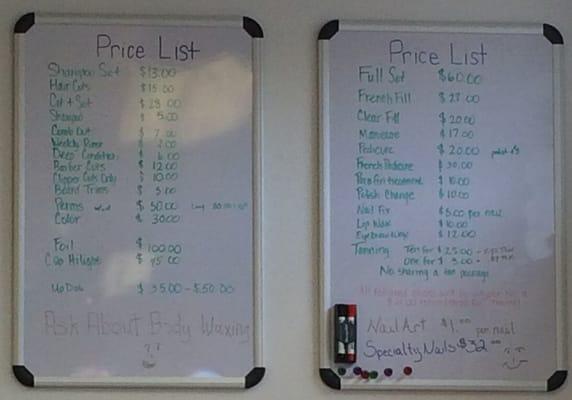 Price List
Shampoo Set $13.00
Hair Cuts $15.00
Cut + Set $28.00
Shampoo $5.00
Comb Out $7.00
Weekly Rinse
Deep Condition $6.00
Barber Cuts $12.00
Clipper Cuts Only $10.00
Beard Trims $5.00
Perms $50.00 Long
Color $30.00
Foil $100.00
Cap Hilight $45.00
UpDo's $35.00 - $50.00
Ask About Body Waxing
Price List
Full Set $60.00
French Fill $27.00
Clear Fill $20.00
Manicure $17.00
Pedicure $20.00
French Pedicure $30.00
Paraffin treatment $10.00
Polish Change $10.00
Nail Fix $5.00 per nail
Lip Wax $10.00
Eyebrow Wax $12.00
Tanning Ten for $25.00
One for $3.00
No sharing a tan package
Nail Art $1.00 per nail
Specialty Nails $32.00